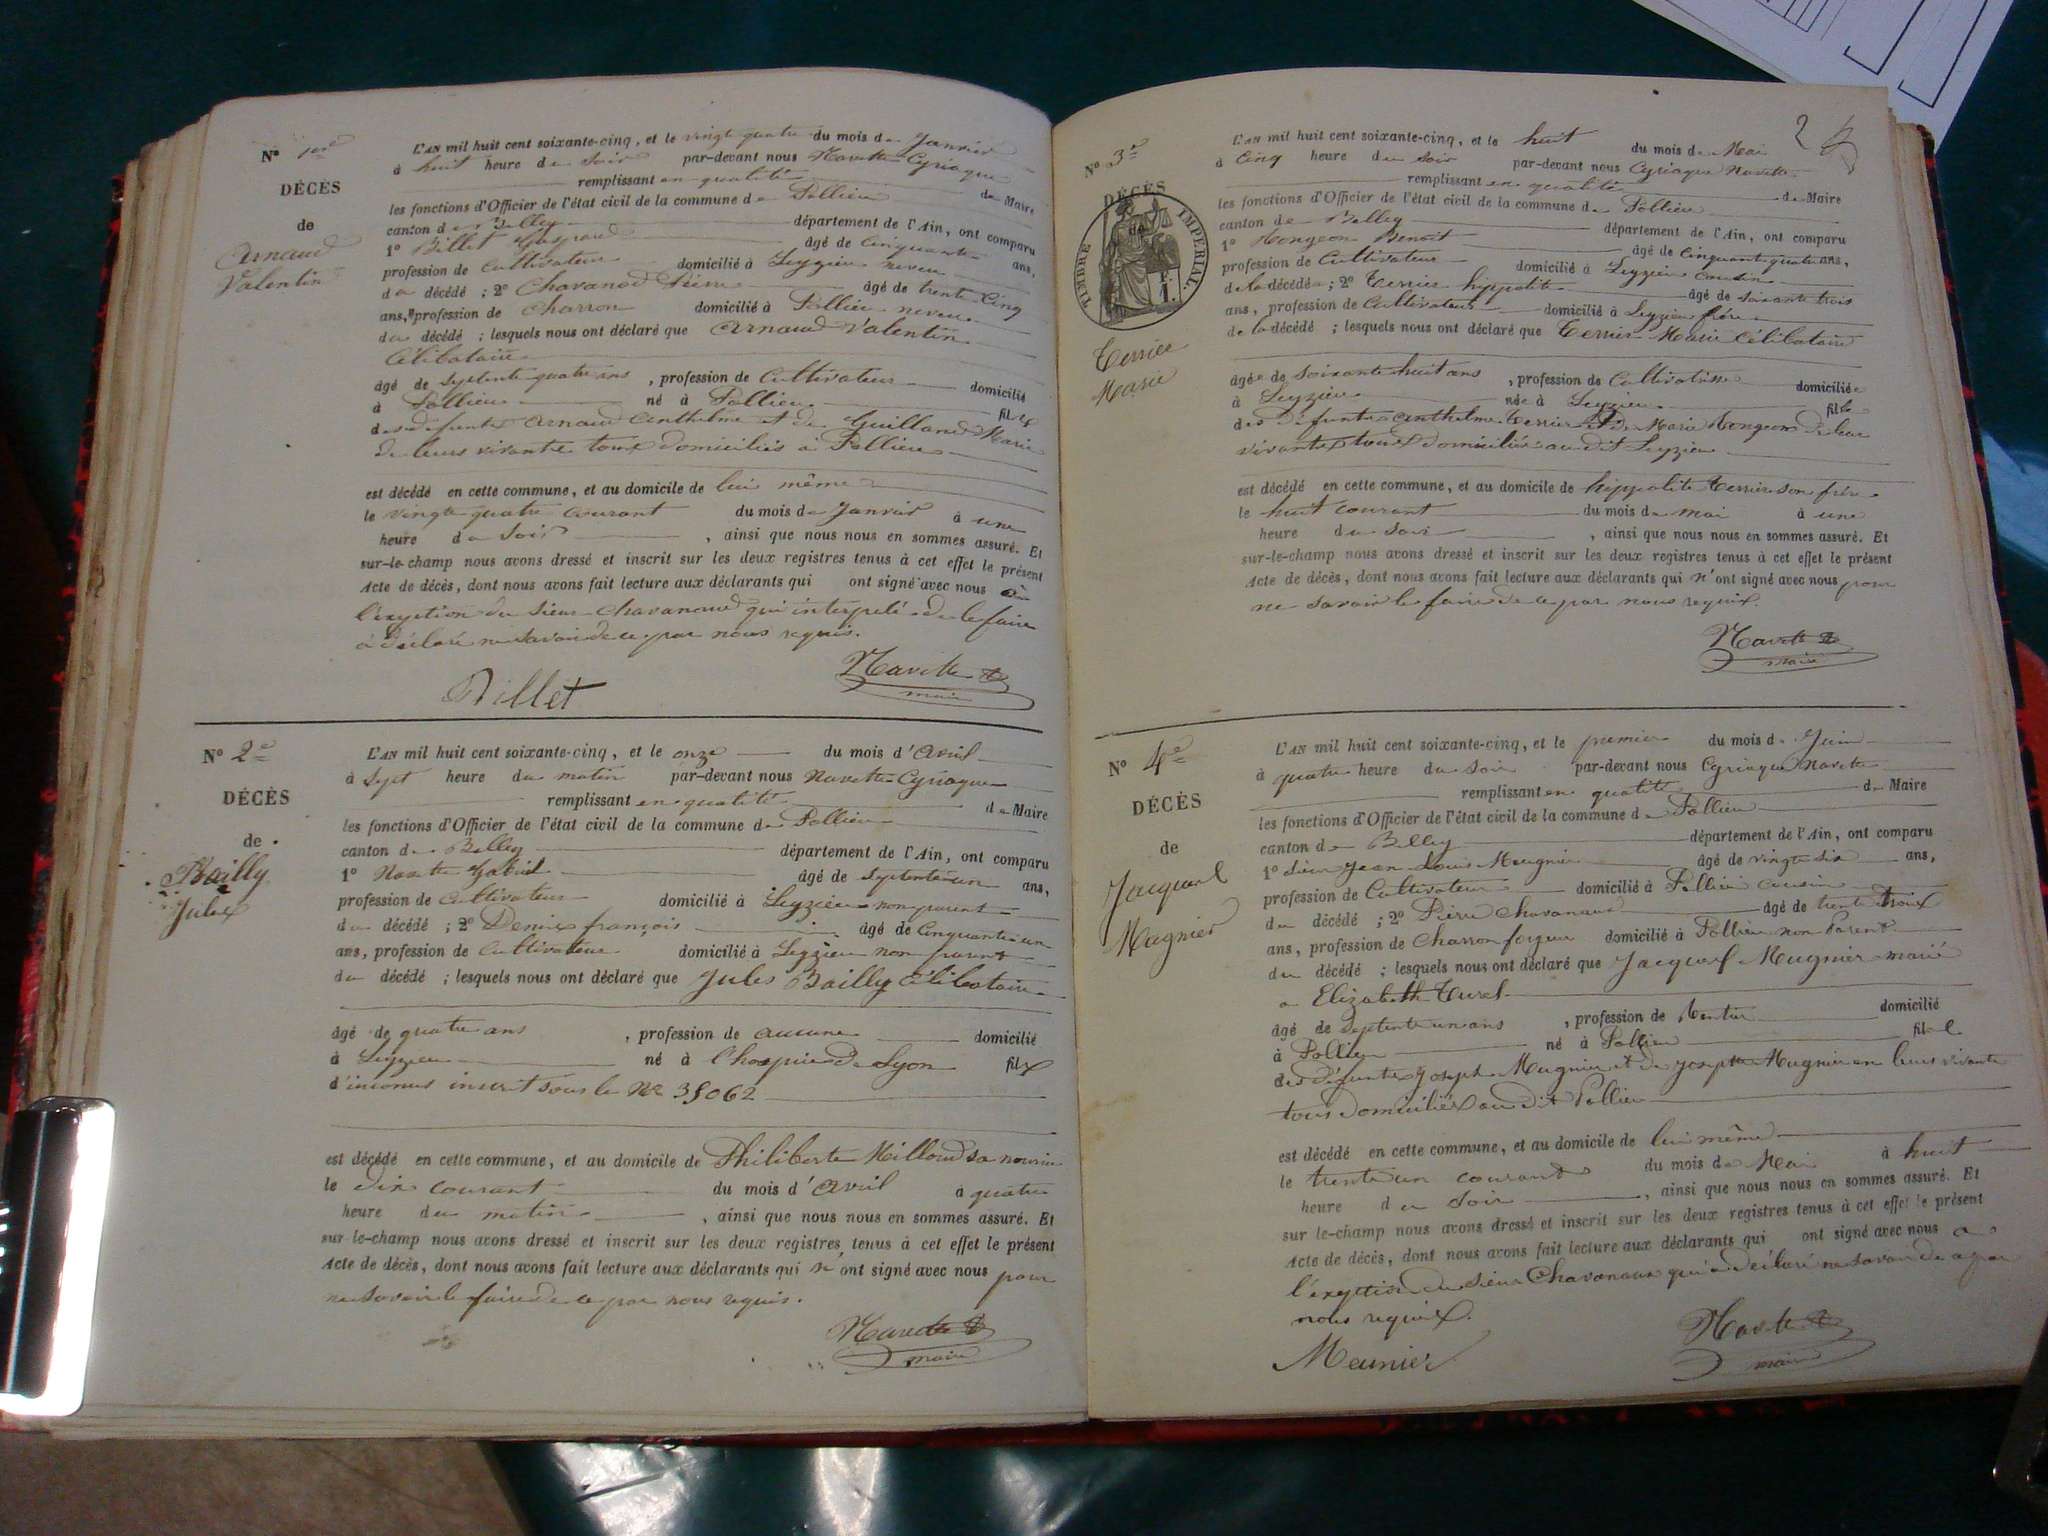 N° 1er
DÉCÈS
de
Arnaud
Valentin
L'AN mil huit cent soixante-cinq, et le vingt quatre du mois de Janvier
à huit heure du soir par-devant nous Navette Cyriaque
remplissant en qualité de Maire
les fonctions d'Officier de l'état civil de la commune de Pollieu
canton de Belley département de l'Ain, ont comparu
1° Billet Gaspard âgé de cinquante ans,
profession de Cultivateur domicilié à Leyzieu neveu
du décédé ; 2° Chavanod Pierre âgé de trente cinq
ans, profession de charron domicilié à Pollieu neveu
du décédé ; lesquels nous ont déclaré que Arnaud Valentin
Célibataire
âgé de septente quatre ans, profession de Cultivateur domicilié
à Pollieu né à Pollieu fils
des défunts Arnaud Anthelme et de Guilland Marie
de leurs vivants tous domiciliés à Pollieu
est décédé en cette commune, et au domicile de lui même
le vingt quatre courant du mois de Janvier à une
heure du soir, ainsi que nous nous en sommes assuré. Et
sur-le-champ nous avons dressé et inscrit sur les deux registres tenus à cet effet le présent
Acte de décès, dont nous avons fait lecture aux déclarants qui ont signé avec nous à
l'exeption du sieur Chavanaud qui interpelé de le faire
a déclaré ne savoir de ce par nous requis.
Billet Navette
maire
N° 2e
DÉCÈS
de
Bailly
Jules
L'AN mil huit cent soixante-cinq, et le onze du mois d'Avril
à sept heure du matin par-devant nous Navette Cyriaque
remplissant en qualité de Maire
les fonctions d'Officier de l'état civil de la commune de Pollieu
canton de Belley département de l'Ain, ont comparu
1° Navette Gabriel âgé de septente un ans,
profession de Cultivateur domicilié à Leyzieu non parent
du décédé ; 2° Denis françois âgé de Cinquante un
ans, profession de Cultivateur domicilié à Leyzieu non parent
du décédé ; lesquels nous ont déclaré que Jules Bailly célibataire
âgé de quatre ans, profession de aucune domicilié
à Leyzieu né à l'hospice de Lyon fils
d'inconus inscrit sous le N° 35062
est décédé en cette commune, et au domicile de Philiberte Milloud sa nourice
le dix courant du mois d'Avril à quatre
heure du matin, ainsi que nous nous en sommes assuré. Et
sur-le-champ nous avons dressé et inscrit sur les deux registres tenus à cet effet le présent
Acte de décès, dont nous avons fait lecture aux déclarants qui n'ont signé avec nous pour
ne savoir le faire de ce par nous requis.
Navette
maire
2
N° 3e
DÉCÈS
TIMBRE IMPÉRIAL
1 F.
Terrier
Marie
L'AN mil huit cent soixante-cinq, et le huit du mois de Mai
à Cinq heure du soir par-devant nous Cyriaque Navette
remplissant en qualité de Maire
les fonctions d'Officier de l'état civil de la commune de Pollieu
canton de Belley département de l'Ain, ont comparu
1° Mongeon Benoît âgé de Cinquante quatre ans,
profession de Cultivateur domicilié à Leyzieu cousin
de la décédée ; 2° Terrier hyppolite âgé de soixante trois
ans, profession de Cultivateur domicilié à Leyzieu frère
de la décédé ; lesquels nous ont déclaré que Terrier Marie Célibataire
âgée de soixante huit ans, profession de Cultivatrice domiciliée
à Leyzieu née à Leyzieu fille
des défunts Anthelme Terrier et de Marie Mongeon de leur
vivants tous domiciliés au dit Leyzieu
est décédé en cette commune, et au domicile de hyppolite Terrier son frère
le huit courant du mois de mai à une
heure du soir, ainsi que nous nous en sommes assuré. Et
sur-le-champ nous avons dressé et inscrit sur les deux registres tenus à cet effet le présent
Acte de décès, dont nous avons fait lecture aux déclarants qui n'ont signé avec nous pour
ne savoir le faire de ce par nous requis.
Navette
maire
N° 4e
DÉCÈS
de
Jacques
Mugnier
L'AN mil huit cent soixante-cinq, et le premier du mois de Juin
à quatre heure du soir par-devant nous Cyriaque Navette
remplissant en qualité de Maire
les fonctions d'Officier de l'état civil de la commune de Pollieu
canton de Belley département de l'Ain, ont comparu
1° Sieur Jean Louis Mugnier âgé de vingt six ans,
profession de Cultivateur domicilié à Pollieu cousin
du décédé ; 2° Pierre Chavanaud âgé de trente trois
ans, profession de Charron forgeur domicilié à Pollieu non Parent
du décédé ; lesquels nous ont déclaré que Jacques Mugnier marié
a Elizabeth Turel
âgé de septente un ans, profession de Rentier domicilié
à Pollieu né à Pollieu fils
des défunts Joseph Mugnier et de Josephte Mugnier en leurs vivants
tous domiciliés au dit Pollieu
est décédé en cette commune, et au domicile de lui même
le trente un courant du mois de Mai à huit
heure du soir, ainsi que nous nous en sommes assuré. Et
sur le-champ nous avons dressé et inscrit sur les deux registres tenus à cet effet le présent
Acte de décès, dont nous avons fait lecture aux déclarants qui ont signé avec nous a
l'exeption du sieur Chavanaux qui a déclaré ne savoir de ce par
nous requis.
Meunier Navette
maire